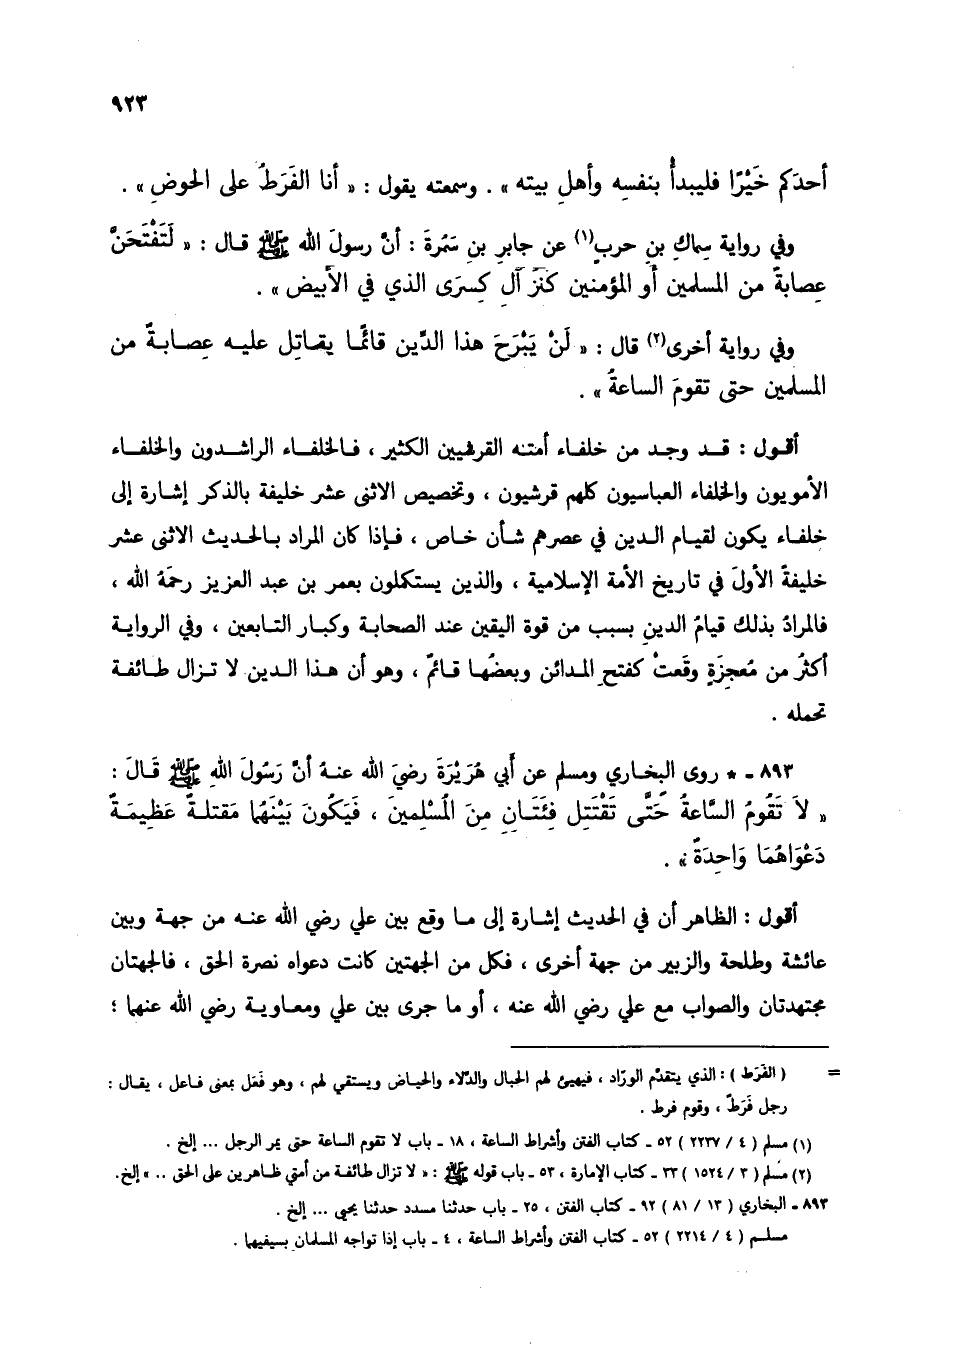 ٩٢٣
أحدَكم خَيْرًا فليبدأْ بنَفسِه وأهلِ بيتِه » . وسمعته يقول : « أنا الفَرَطُ على الحوضِ » .
وفي رواية سِماكِ بنِ حربٍ(١) عن جابرِ بنِ سَمُرةَ : أنَّ رسولَ الله ﷺ قال : « لَتَفْتَحَنَّ
عِصابةٌ من المسلمين أو المؤمنين كَنْزَ آلِ كِسرَى الذي في الأبيض » .
وفي رواية أخرى(٢) قال : « لَنْ يَبْرَحَ هذا الدِّين قائمًا يقاتِل عليه عِصابةٌ من
المسلمين حتى تقومَ الساعةُ » .
أقول : قد وجد من خلفاء أمته القرشيين الكثير ، فالخلفاء الراشدون والخلفاء
الأمويون والخلفاء العباسيون كلهم قرشيون ، وتخصيص الاثنى عشر خليفة بالذكر إشارة إلى
خلفاء يكون لقيام الدين في عصرهم شأن خاص ، فإذا كان المراد بالحديث الاثنى عشر
خليفةً الأولَ في تاريخ الأمة الإسلامية ، والذين يستكملون بعمر بن عبد العزيز رحمَهُ الله ،
فالمرادُ بذلك قيامُ الدينِ بسبب من قوة اليقين عند الصحابة وكبار التابعين ، وفي الرواية
أكثرُ من مُعجزةٍ وقَعتْ كفتحِ المدائن وبعضُها قائمٌ ، وهو أن هذا الدين لا تزال طائفة
تحمله .
٨٩٣ - * روى البخاري ومسلم عن أَبي هُرَيْرَةَ رضيَ الله عنهُ أنَّ رَسُولَ اللهِ ﷺ قَالَ :
« لاَ تَقُومُ السَّاعةُ حَتَّى تَقْتَتِل فِئَتَانِ مِنَ المُسْلِمينَ ، فَيَكُونَ بَيْنَهُما مَقتلةٌ عَظِيمَةٌ
دَعْوَاهُمَا وَاحِدَةٌ » .
أقول : الظاهر أن في الحديث إشارة إلى ما وقع بين علي رضي الله عنه من جهة وبين
عائشة وطلحة والزبير من جهة أخرى ، فكل من الجهتين كانت دعواه نصرة الحق ، فالجهتان
مجتهدتان والصواب مع علي رضي الله عنه ، أو ما جرى بين علي ومعاوية رضي الله عنهما ؛
= ( الفَرَط ) : الذي يتقدَّم الورّاد ، فيهيئ لهم الحبال والدِّلاء والحياض ويستقي لهم ، وهو فَعَل بمعنى فاعل ، يقال :
رجل فَرَطٌ ، وقوم فرط .
(١) مسلم ( ٤ / ٢٢٣٧ ) ٥٢ - كتاب الفتن وأشراط الساعة ، ١٨ - باب لا تقوم الساعة حتى يمر الرجل ... إلخ .
(٢) مسلم ( ٣ / ١٥٢٤ ) ٣٣ - كتاب الإمارة ، ٥٣ - باب قوله ﷺ : « لا تزال طائفة من أمتي ظاهرين على الحق .. » إلخ.
٨٩٣ - البخاري ( ١٣ / ٨١ ) ٩٢ - كتاب الفتن ، ٢٥ - باب حدثنا مسدد حدثنا يحيى ... إلخ .
مسلم ( ٤ / ٢٢١٤ ) ٥٢ - كتاب الفتن وأشراط الساعة ، ٤ - باب إذا تواجه المسلمان بسيفيهما .